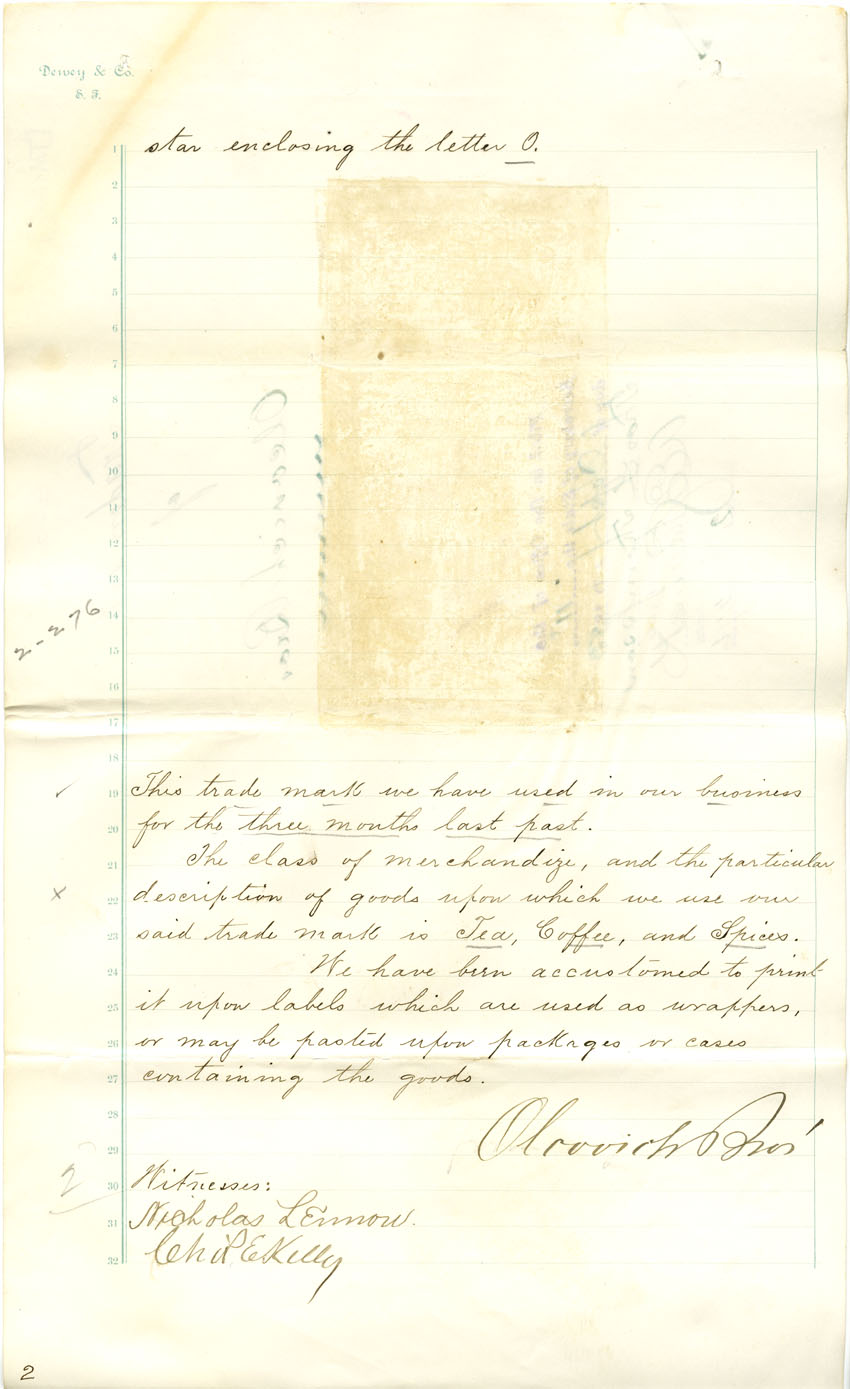 Dewey & Co.
S. F.
star enclosing the letter O.
2-276
This trade mark we have used in our business
for the three months last past.
The class of merchandize, and the particular
description of goods upon which we use our
said trade mark is Tea, Coffee, and Spices.
We have been accustomed to print
it upon labels which are used as wrappers,
or may be pasted upon packages or cases
containing the goods.
Olcovich Bros
2
Witnesses:
Nicholas Lennow.
Chas E Kelly
2